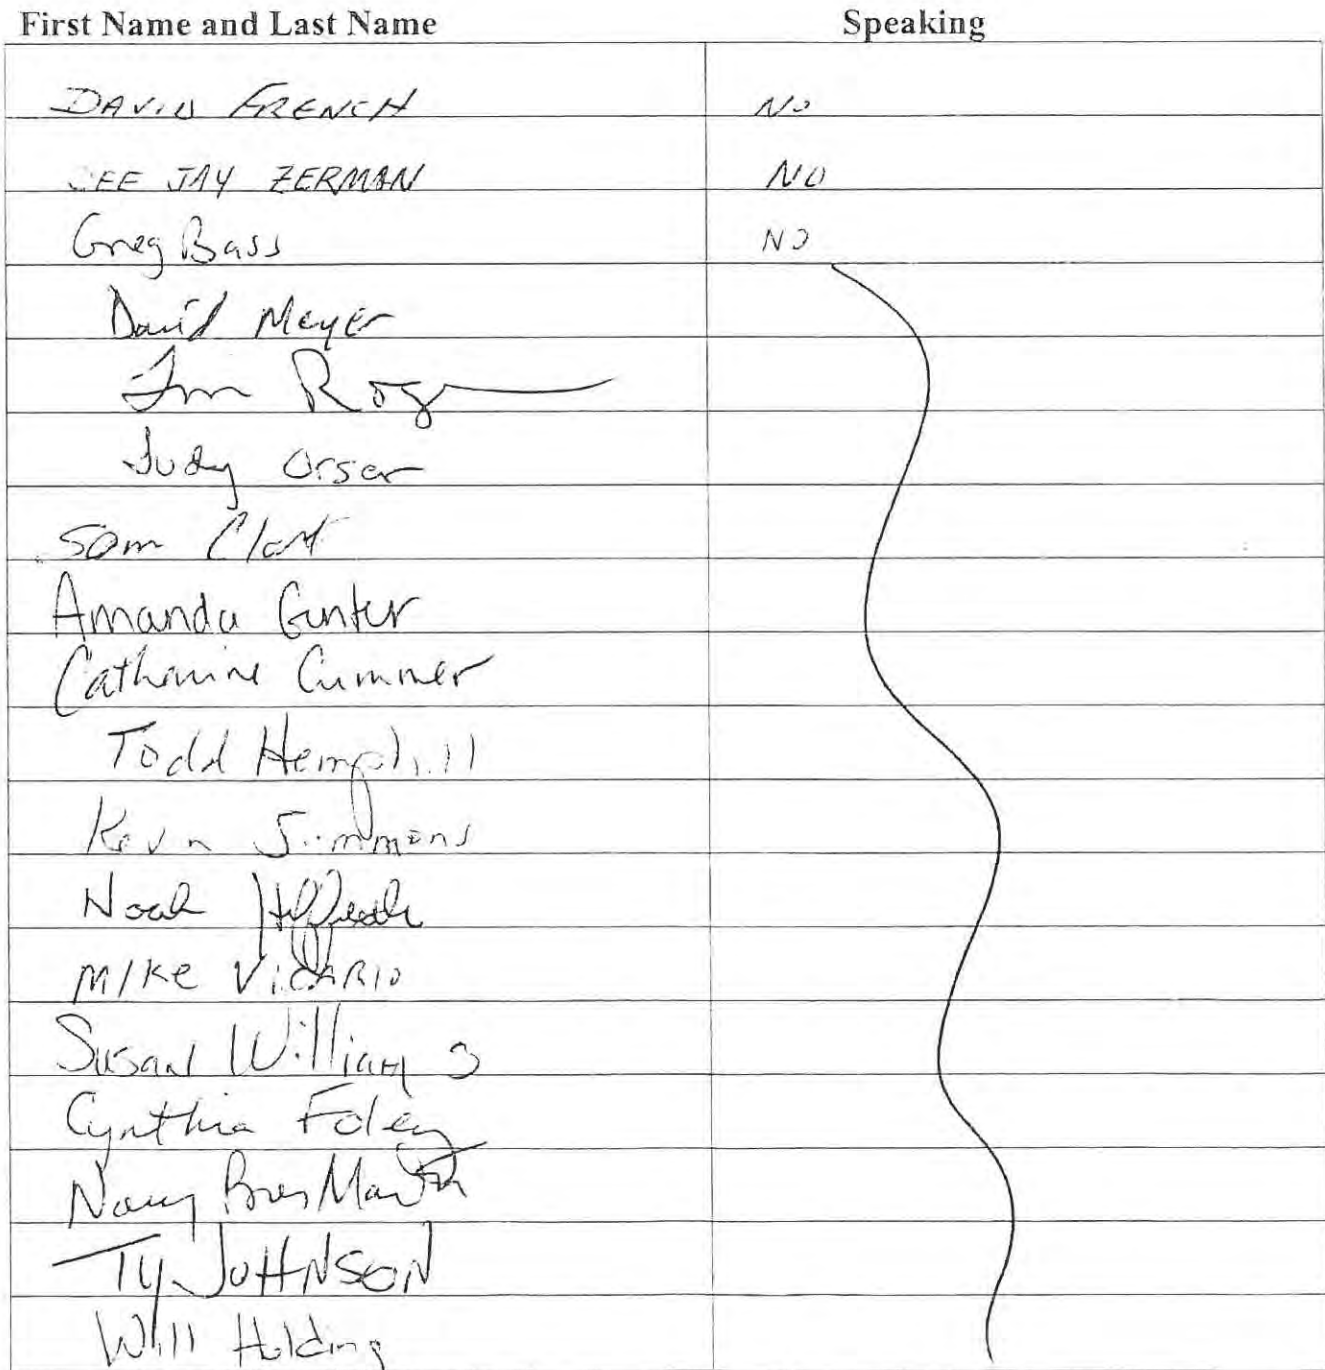 First Name and Last Name Speaking
DAVID FRENCH NO
JAY ZERMAN NO
Greg Bass NO
David Meyer
Judy Orser
Sam Clark
Amanda Gunter
Catharine Cummer
Todd Hemphill
Kevin Simmons
Noah
MIKE VICARIO
Susan Williams
Cynthia Foley
Nancy Bres Martin
TY JOHNSON
Will Holding